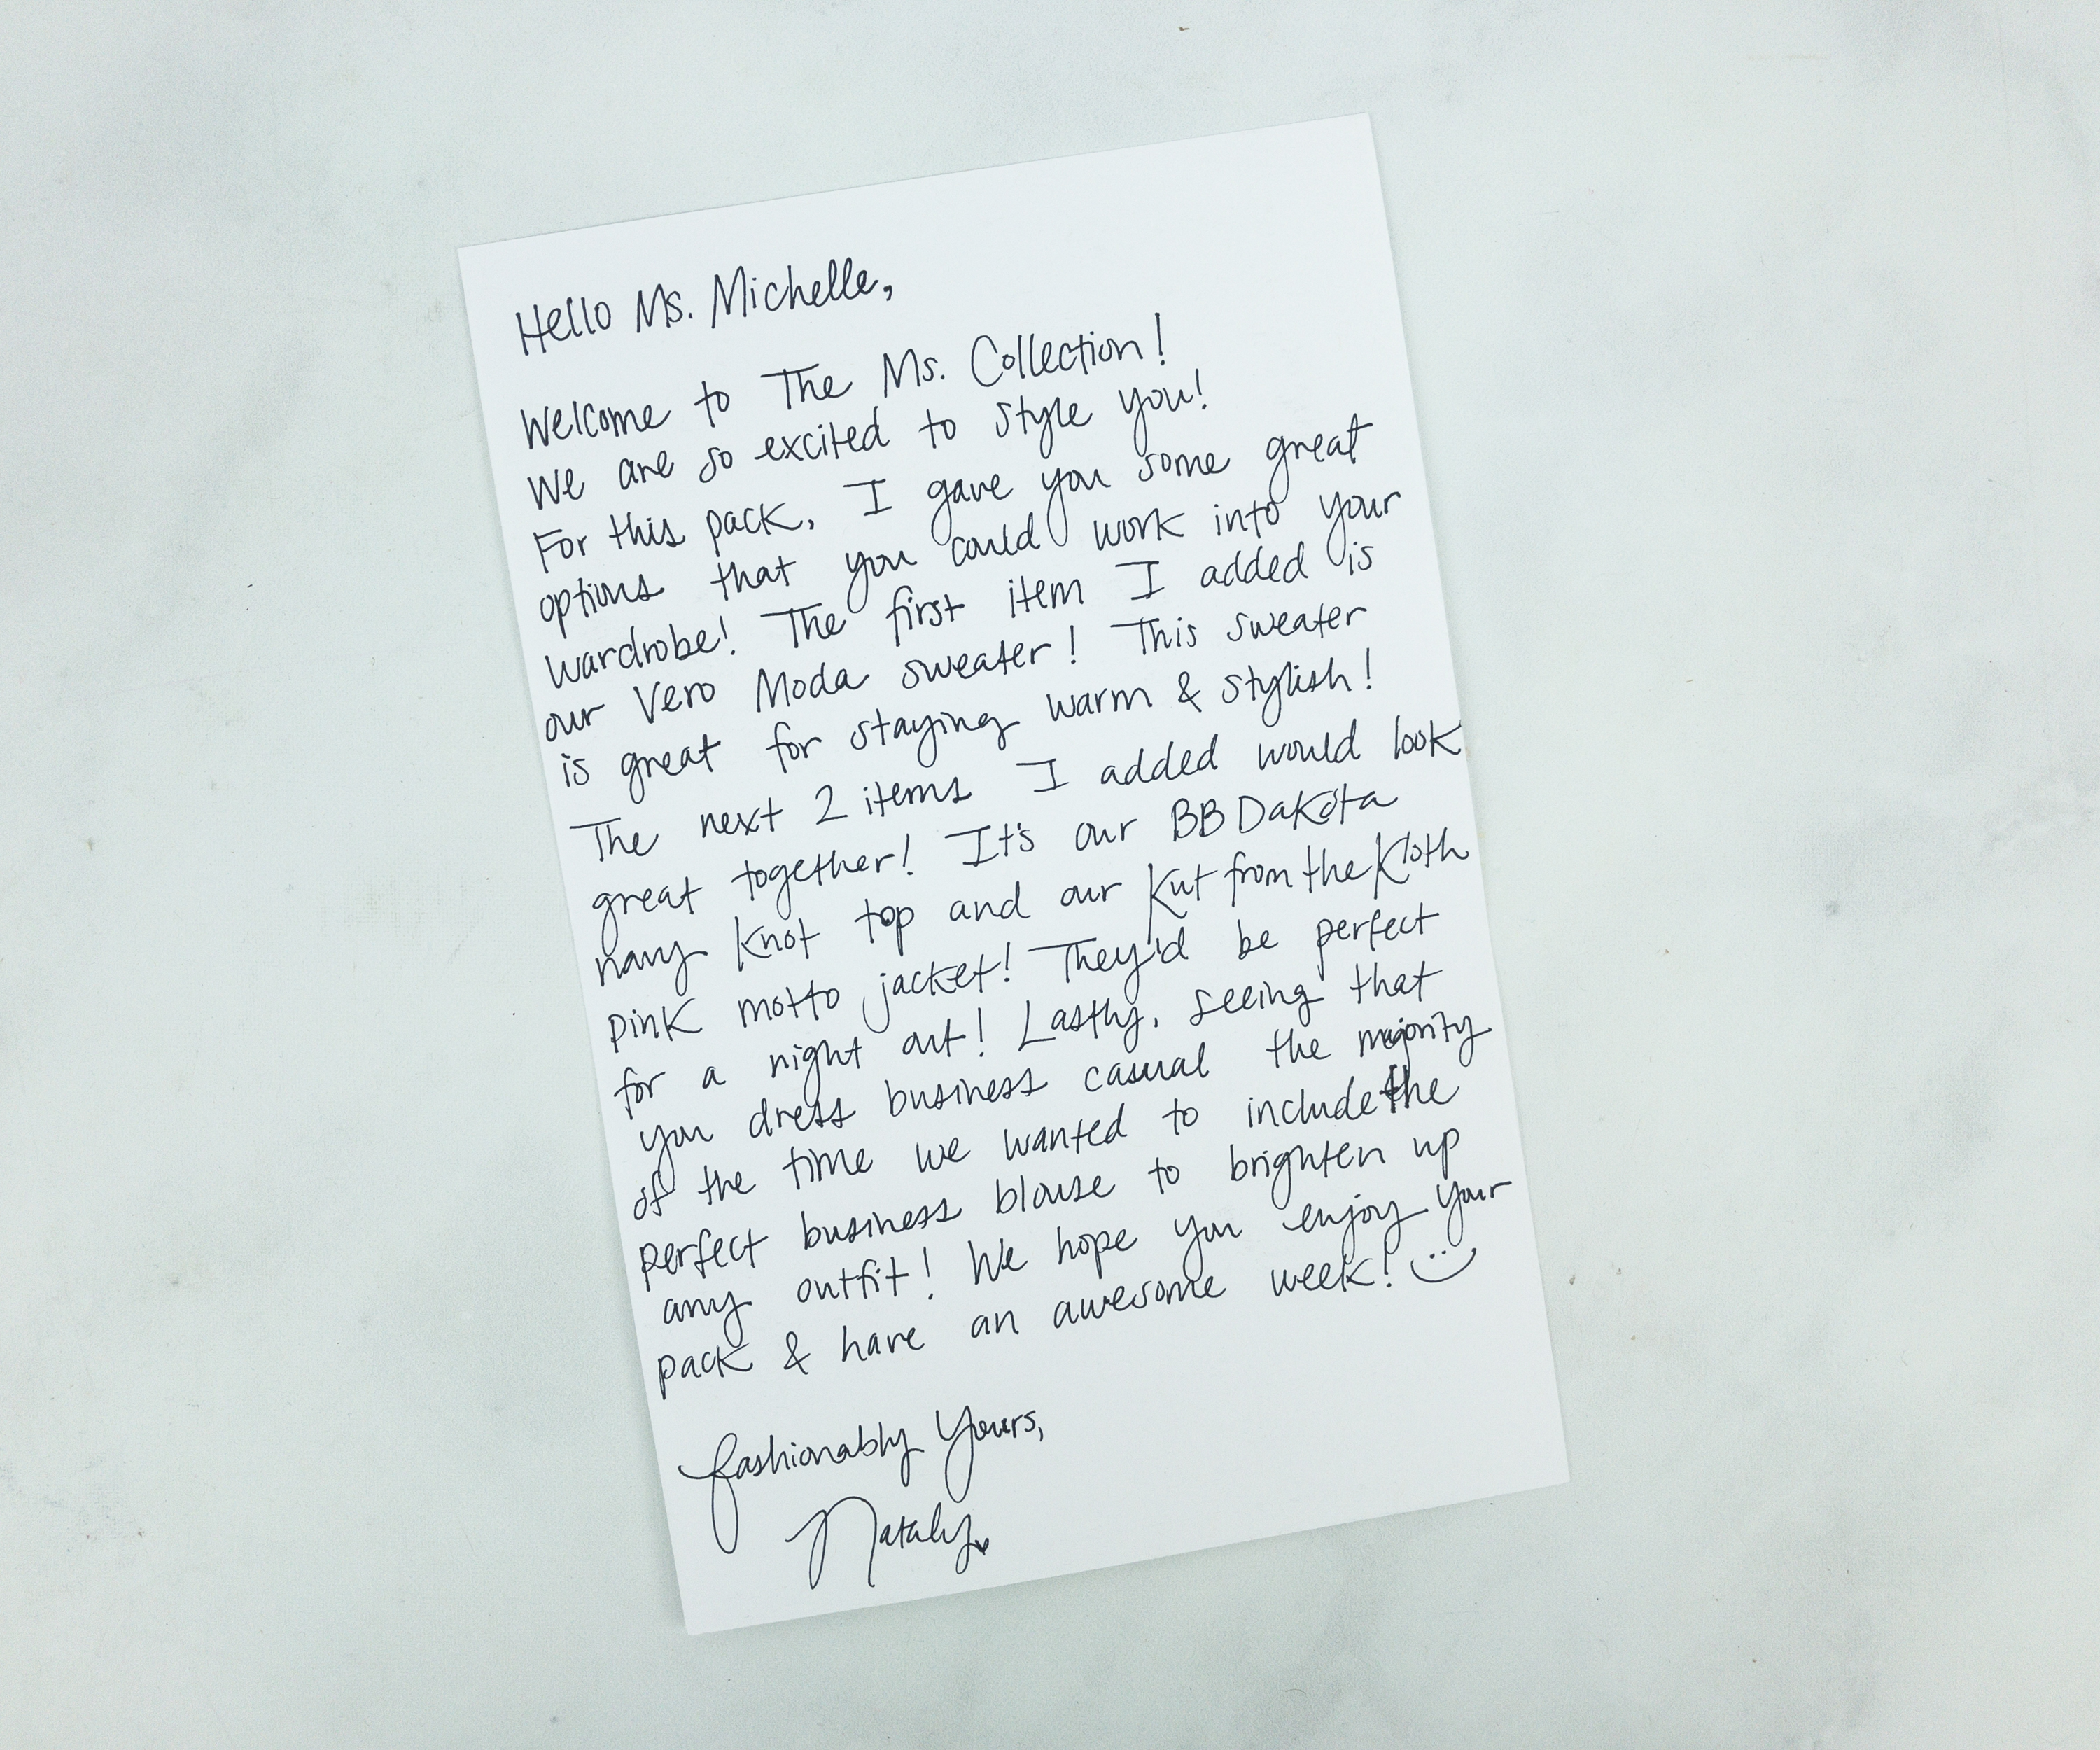 Hello Ms. Michelle,
Welcome to The Ms. Collection!
We are so excited to style you!
For this pack, I gave you some great
options that you could work into your
wardrobe! The first item I added is
our Vero Moda sweater! This sweater
is great for staying warm & stylish!
The next 2 items I added would look
great together! It's our BB Dakota
navy knot top and our Kut from the Kloth
pink motto jacket! They'd be perfect
for a night out! Lastly, seeing that
you dress business casual the majority
of the time we wanted to include the
perfect business blouse to brighten up
any outfit! We hope you enjoy your
pack & have an awesome week! :)
Fashionably Yours,
Nataly